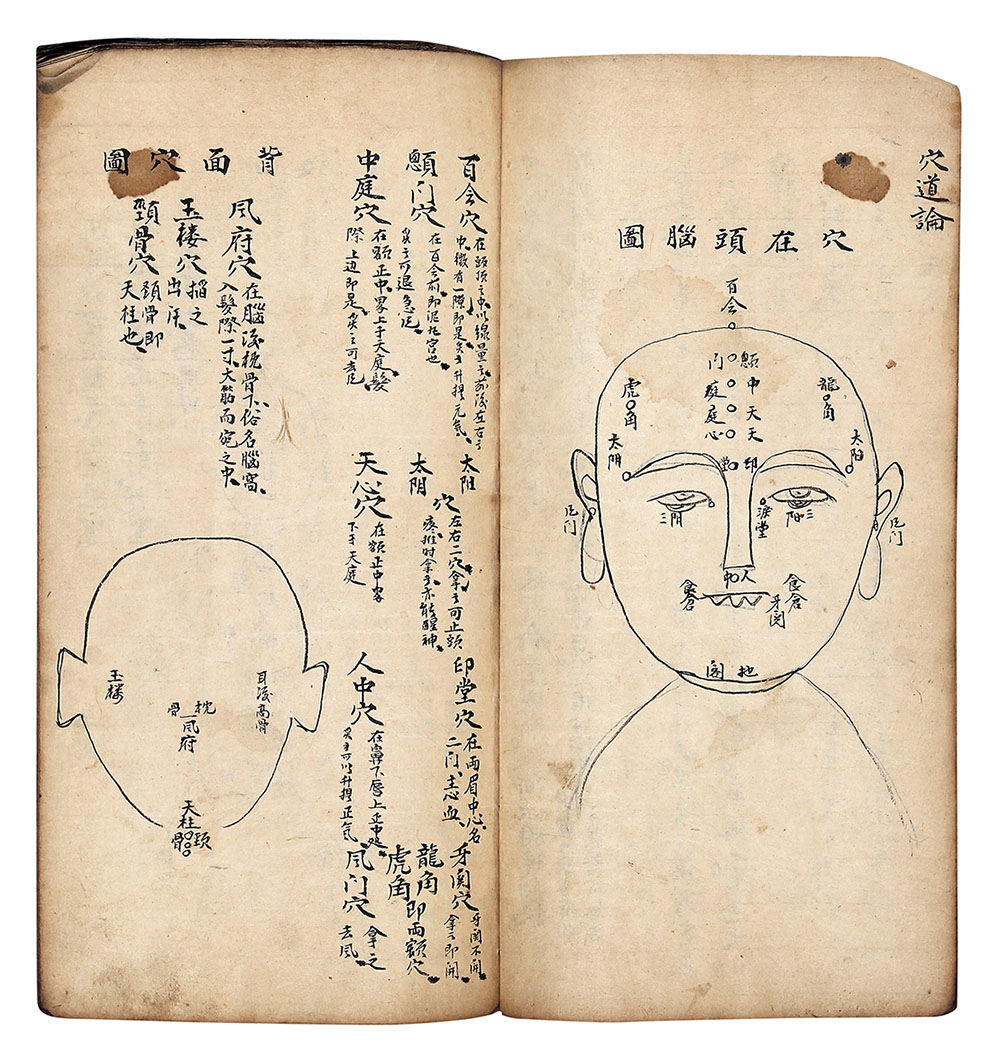 穴道論
穴在頭腦圖
百会
顖门
中庭
天庭
天心
龍角
虎角
太阳
太阴
印堂
淚堂
三阳
三阴
凬门
凬门
人中
食倉
食倉
牙関
地阁
百会穴
在頭頂之中以線量之前後左右之
中、微有一隙即是灸之升提元氣、
顖门穴
在百会前即泥丸宫也
灸之可退急
中庭穴
在額正中界上于天庭髮
際上边即是、灸之可去
太阳
太阴
穴
左右二穴拿之可止頭
疼推时拿之亦能醒神、
天心穴
在額正中界
下于天庭
印堂穴
在両眉中心名
二门、主心血、
人中穴
在鼻下唇上正中処
灸之可以升提正气
牙関穴
牙関不開
拿之即開
龍角
虎角
即両額穴
凬门穴
拿之
去凬
背面穴圖
凬府穴
在腦後枕骨下、俗名腦窩、
入髮際一寸、大筋而宛之中、
玉楼穴
掐之
出汗、
頸骨穴
頸骨即
天柱也、
耳後高骨
玉楼
枕骨
凬府
天柱
頸骨